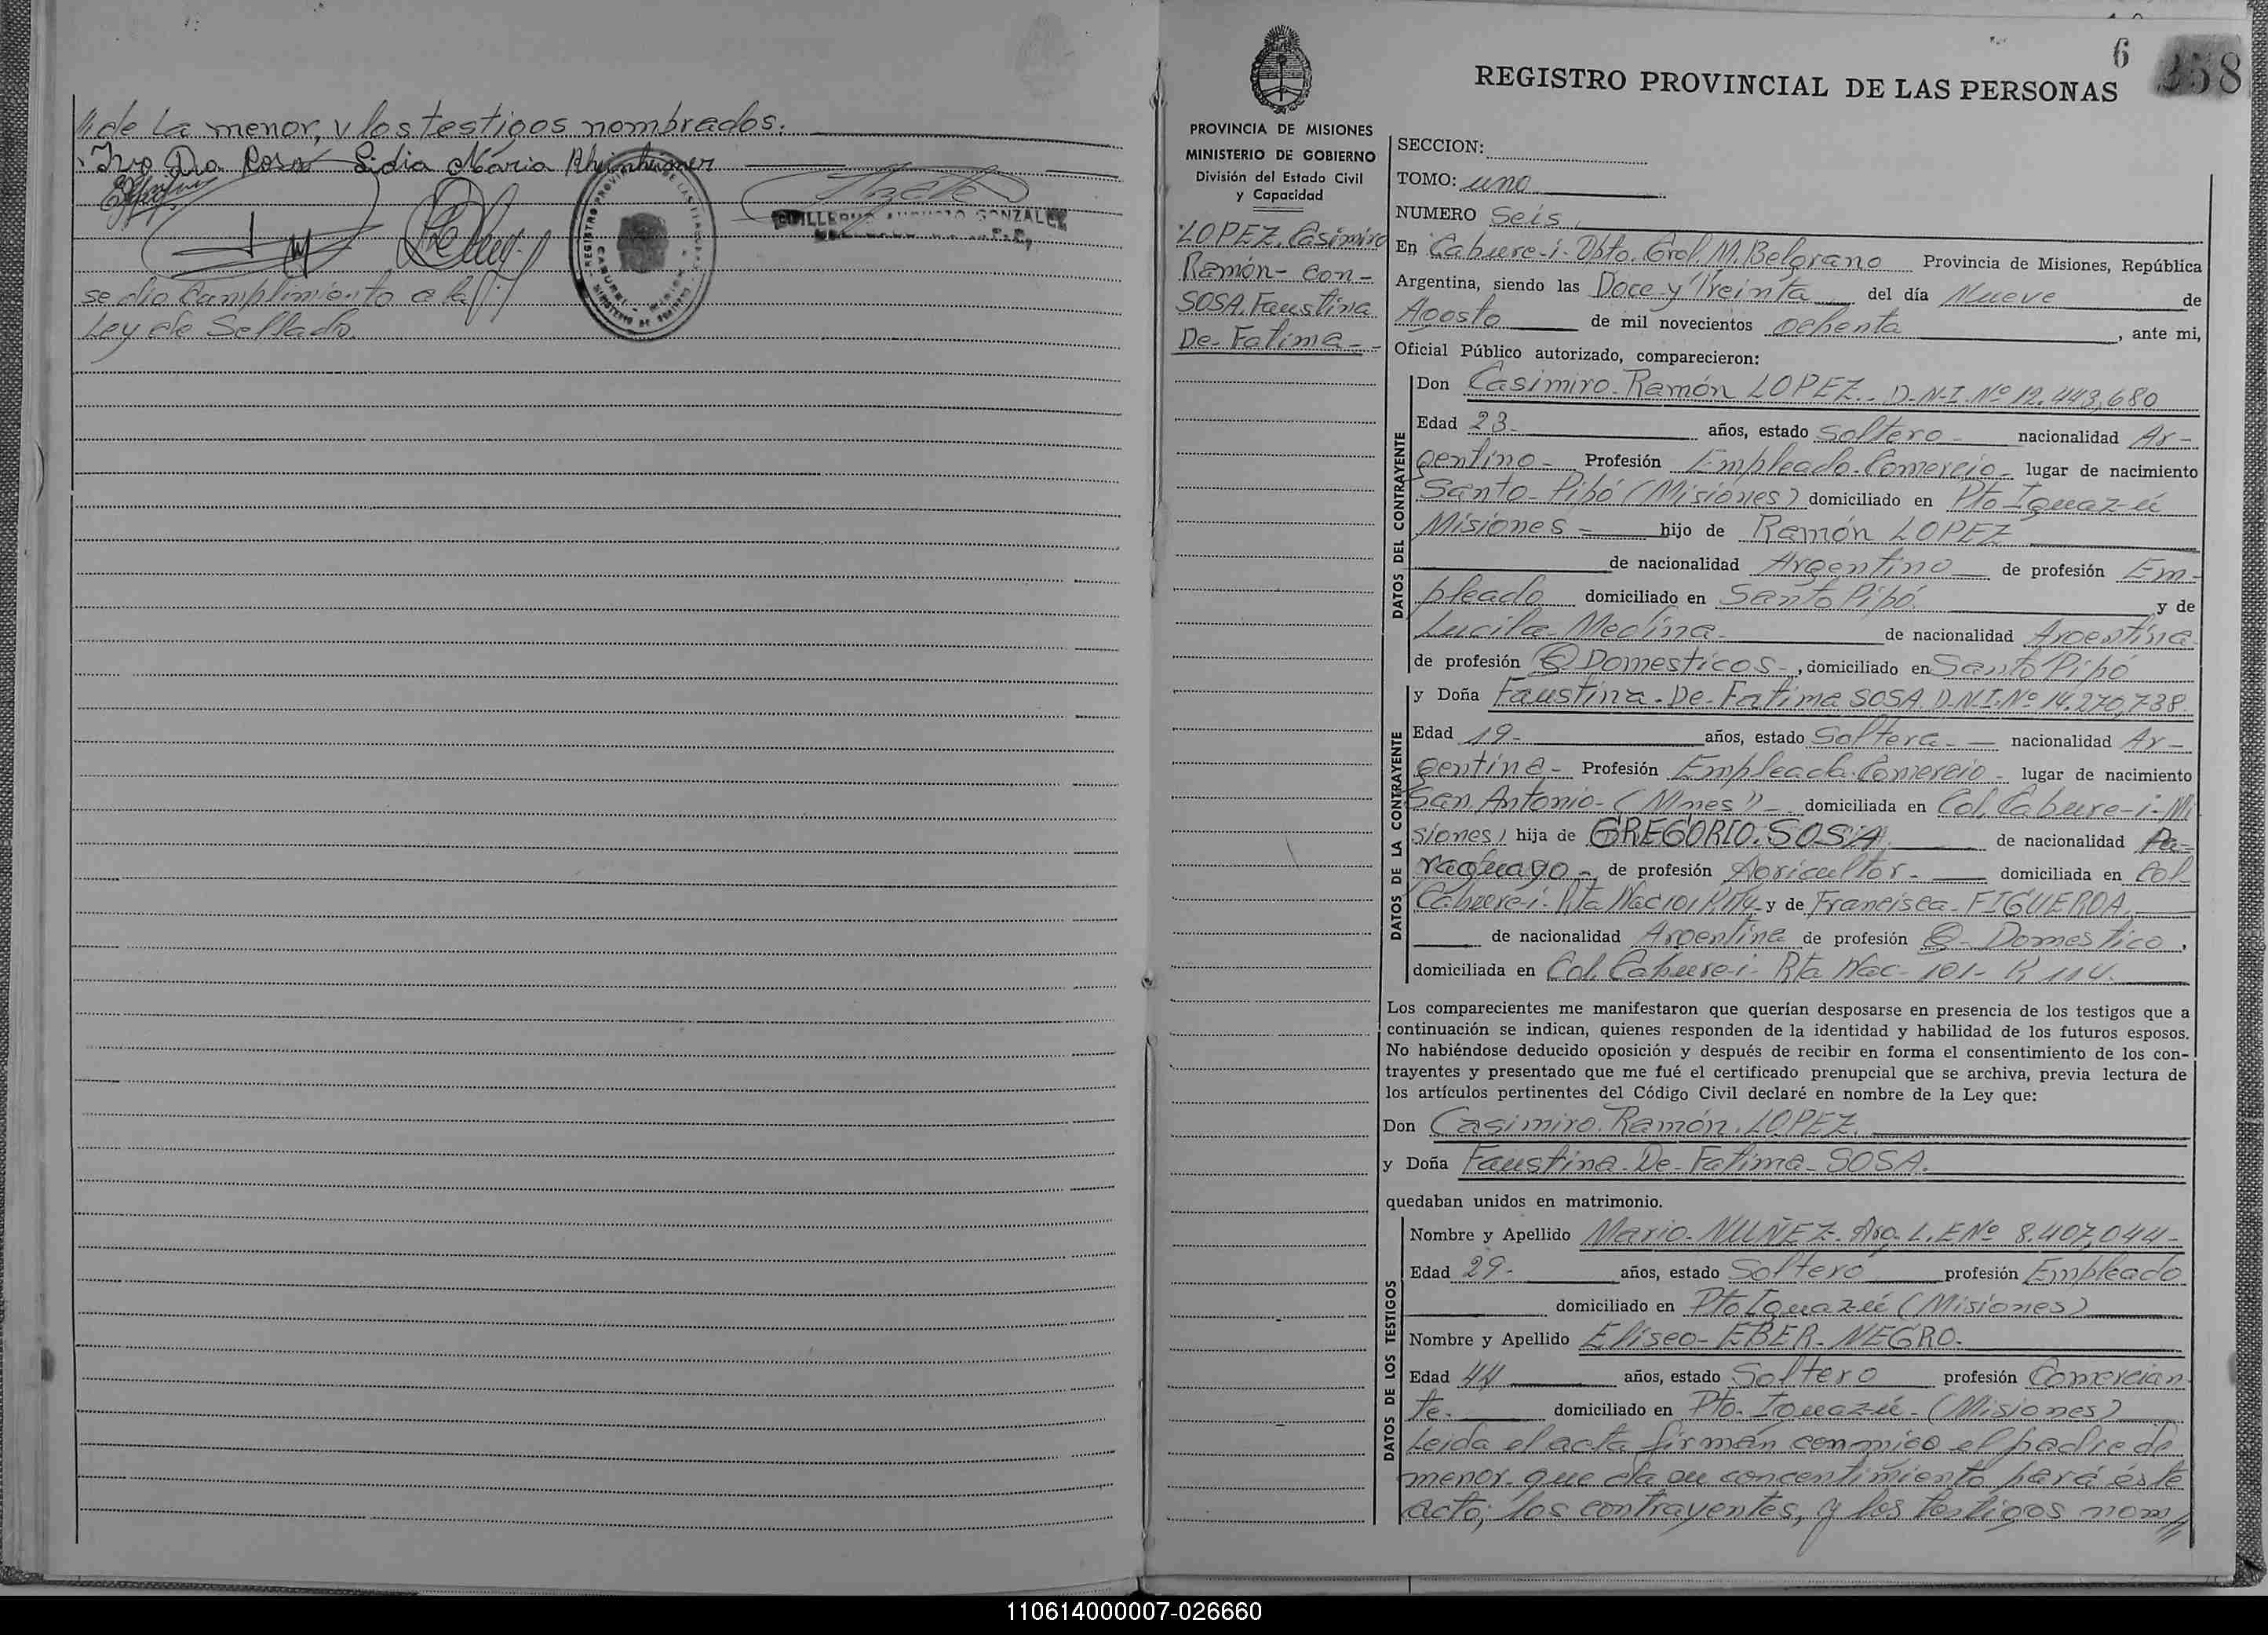 // de La menor, y los testigos nombrados.
Ivo Da Rosa Lidia Maria
GUILLERMO AUGUSTO GONZALEZ
se dio Cumplimiento a la
Ley de Sellado.
6
358
REGISTRO PROVINCIAL DE LAS PERSONAS
PROVINCIA DE MISIONES
MINISTERIO DE GOBIERNO
División del Estado Civil
y Capacidad
LOPEZ, Casimiro
Ramón - con -
SOSA, Faustina
De - Fatima - -
SECCION:
TOMO: uno
NUMERO Seis
En Cabure-i- Dpto. Gral. M. Belgrano Provincia de Misiones, República
Argentina, siendo las Doce y Treinta del día Nueve de
Agosto de mil novecientos ochenta , ante mi,
Oficial Público autorizado, comparecieron:
DATOS DEL CONTRAYENTE
Don Casimiro Ramón LOPEZ.. D.N.I. Nº 12.443,680
Edad 23- años, estado Soltero - nacionalidad Ar-
gentino - Profesión Empleado-Comercio- lugar de nacimiento
Santo-Pipó (Misiones) domiciliado en Pto-Iguazú
Misiones - hijo de Ramón LOPEZ
de nacionalidad Argentino de profesión Em-
pleado domiciliado en Santo Pipó y de
Lucila-Medina- de nacionalidad Argentina-
de profesión Q Domesticos-, domiciliado en Santo Pipó
DATOS DE LA CONTRAYENTE
y Doña Faustina-De-Fatima SOSA. D.N.I. Nº 14.270,738
Edad 19- años, estado Soltera- - nacionalidad Ar-
gentina- Profesión Empleada-Comercio- lugar de nacimiento
San Antonio-(Mnes")- domiciliada en Col. Cabure-i-Mi
siones) hija de GREGORIO. SOSA de nacionalidad Pa-
raguayo- de profesión Agricultor- domiciliada en Col-
Cabure-i- Rta Nac 101 K 114 y de Francisca-FIGUEROA,
de nacionalidad Argentina de profesión Q-Domestico,
domiciliada en Col. Cabure-i- Rta Nac- 101- K 114.
Los comparecientes me manifestaron que querían desposarse en presencia de los testigos que a
continuación se indican, quienes responden de la identidad y habilidad de los futuros esposos.
No habiéndose deducido oposición y después de recibir en forma el consentimiento de los con-
trayentes y presentado que me fué el certificado prenupcial que se archiva, previa lectura de
los artículos pertinentes del Código Civil declaré en nombre de la Ley que:
Don Casimiro. Ramón. LOPEZ.
y Doña Faustina-De-Fatima-SOSA.
quedaban unidos en matrimonio.
DATOS DE LOS TESTIGOS
Nombre y Apellido Mario-NUÑEZ-Arg. L.E Nº 8.407,044-
Edad 29- años, estado Soltero profesión Empleado
domiciliado en Pto Iguazú (Misiones)
Nombre y Apellido Eliseo-EBER-NEGRO.
Edad 44 años, estado Soltero profesión Comercian
te. domiciliado en Pto. Iguazú-(Misiones)
Leida el acta firmán conmigo el padre de
menor que da su concentimiento pará éste
acto; los contrayentes, y los testigos nom//
110614000007-026660